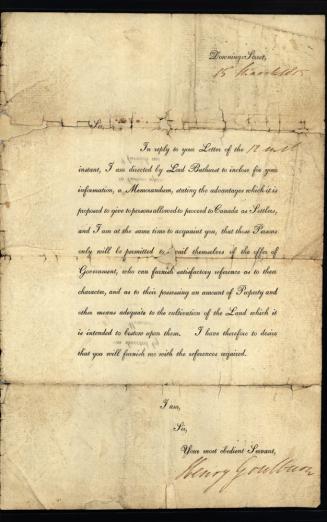 Downing-Street,
15 March 1815
Sir,
In reply to your Letter of the 12
instant, I am directed by Lord Bathurst to inclose for your
information, a Memorandum, stating the advantages which it is
proposed to give to persons allowed to proceed to Canada as Settlers,
and I am at the same time to acquaint you, that those Persons
only will be permitted to avail themselves of the offer of
Government, who can furnish satisfactory reference as to their
character, and as to their possessing an amount of Property and
other means adequate to the cultivation of the Land which it
is intended to bestow upon them. I have therefore to desire
that you will furnish me with the references required.
I am,
Sir,
Your most obedient Servant,
Henry Goulburn